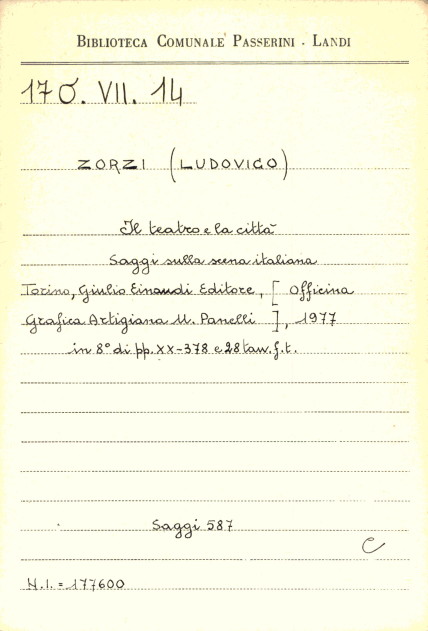 BIBLIOTECA COMUNALE PASSERINI - LANDI
17 O. VII. 14
ZORZI (LUDOVICO)
Il teatro e la città
Saggi sulla scena italiana
Torino, Giulio Einaudi Editore, [ Officina
Grafica Artigiana U. Panelli ], 1977
in 8° di pp. XX-378 e 28 tav. f. t.
Saggi 587
C
N.I. = 177600